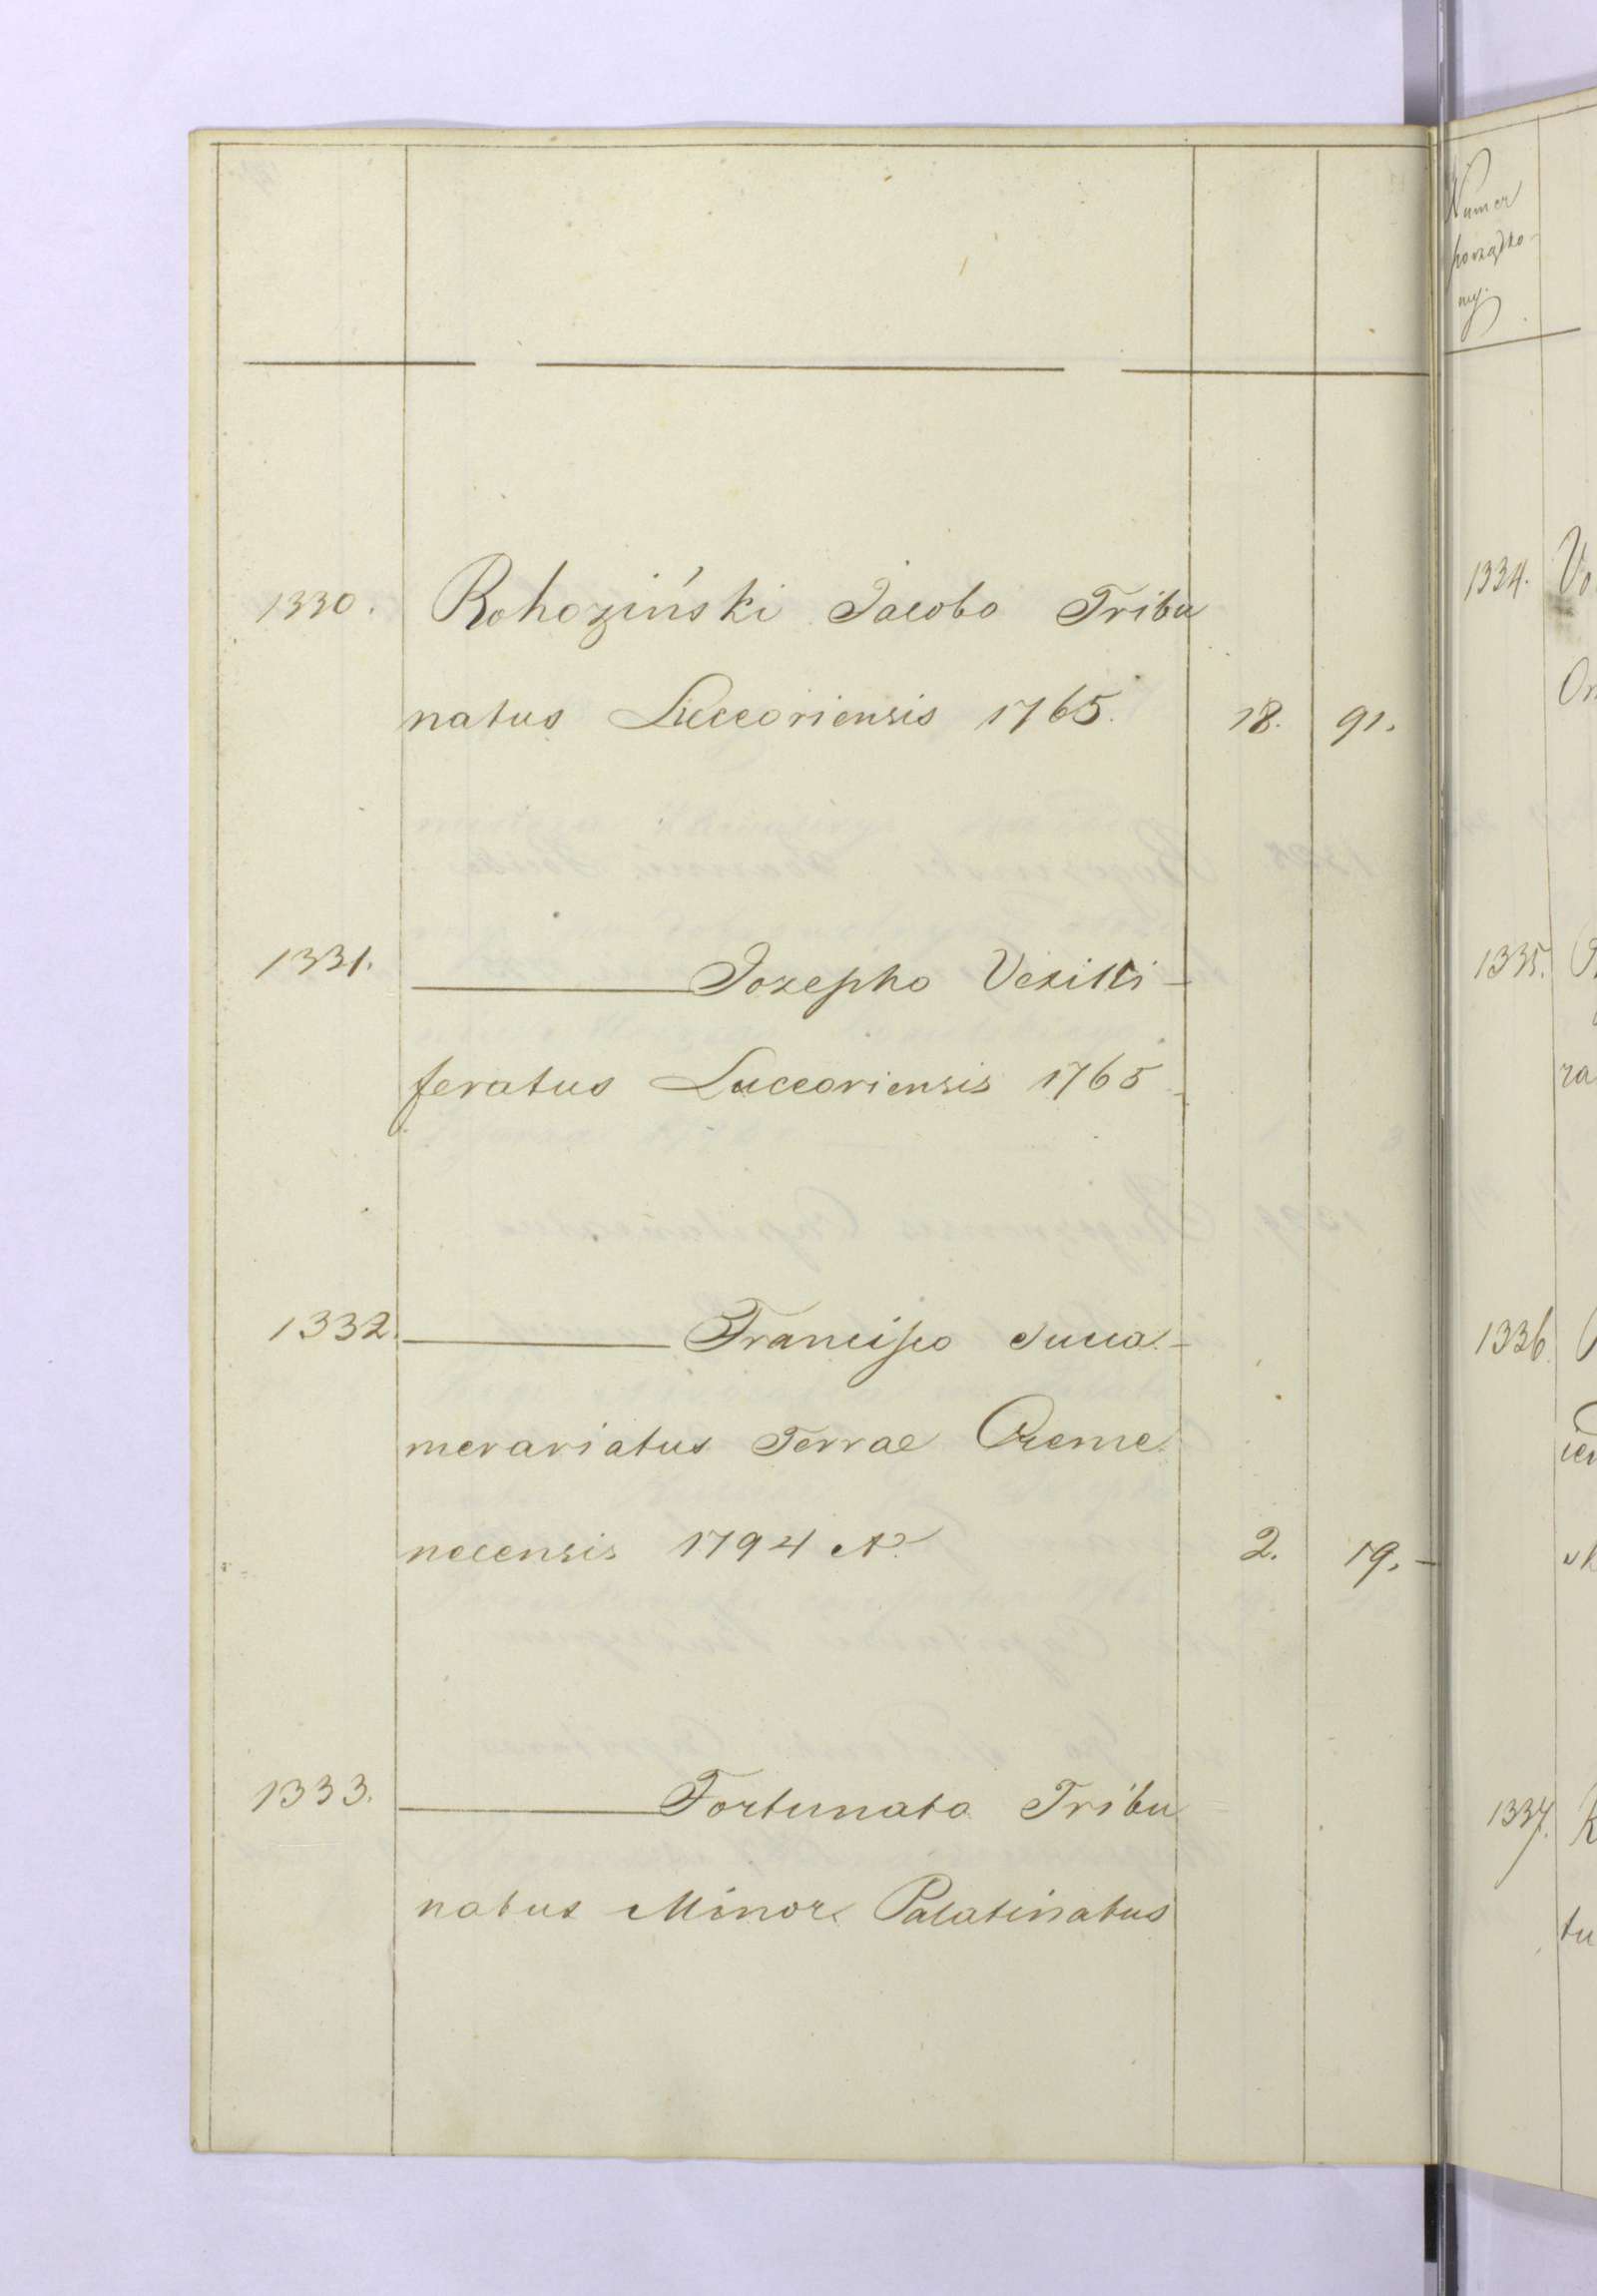 1330. Rohoziński Jacobo Tribu
natus Luceoriensis 1765. 18. 91.
1331. Jozepho Vexilli-
feratus Luceoriensis 1765
1332. Francisco Succa-
merariatus Terrae Creme
necensis 1794 A. 2. 19.
1333. Fortunato Tribu
natus Minor Palatinatus
Numer
porządko-
wy.
1334. Vo
On
1335.
ra
1336
1337. R
tu